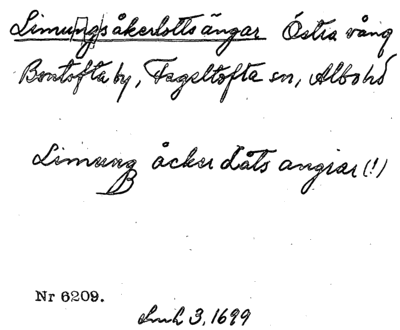 Limungsåkerlottsängar Östra vång
Bontofta by, Fageltofta sn, Albo hd
Limung åcker låts angiar (!)
B
Nr 6209.
Lmh 3, 1699